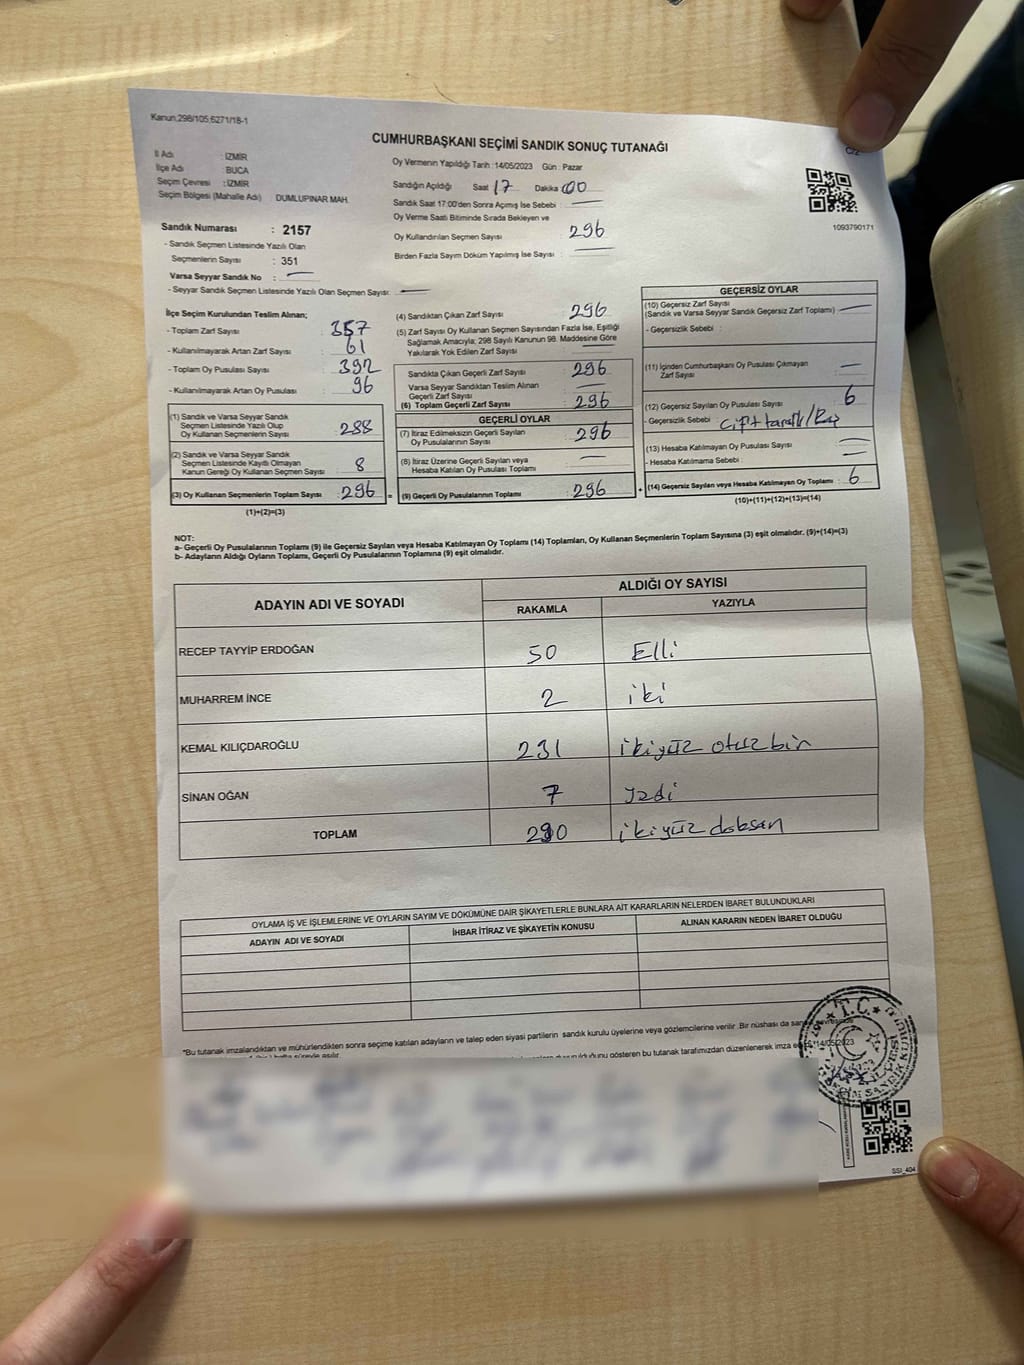 Kanun.298/105,6271/18-1
CUMHURBAŞKANI SEÇİMİ SANDIK SONUÇ TUTANAĞI
C/2
İl Adı : İZMİR
İlçe Adı : BUCA
Seçim Çevresi : İZMİR
Seçim Bölgesi (Mahalle Adı) : DUMLUPINAR MAH.
Oy Vermenin Yapıldığı Tarih : 14/05/2023 Gün : Pazar
Sandığın Açıldığı Saat 17 Dakika 00
Sandık Saat 17:00'den Sonra Açımış İse Sebebi :
Oy Verme Saati Bitiminde Sırada Bekleyen ve
Oy Kullandırılan Seçmen Sayısı : 296
Birden Fazla Sayım Döküm Yapılmış İse Sayısı :
1093790171
Sandık Numarası : 2157
- Sandık Seçmen Listesinde Yazılı Olan
Seçmenlerin Sayısı : 351
Varsa Seyyar Sandık No :
- Seyyar Sandık Seçmen Listesinde Yazılı Olan Seçmen Sayısı:
İlçe Seçim Kurulundan Teslim Alınan;
- Toplam Zarf Sayısı : 357
- Kullanılmayarak Artan Zarf Sayısı : 61
- Toplam Oy Pusulası Sayısı : 392
- Kullanılmayarak Artan Oy Pusulası : 96
(1) Sandık ve Varsa Seyyar Sandık
Seçmen Listesinde Yazılı Olup
Oy Kullanan Seçmenlerin Sayısı : 288
(2) Sandık ve Varsa Seyyar Sandık
Seçmen Listesinde Kayıtlı Olmayan
Kanun Gereği Oy Kullanan Seçmen Sayısı : 8
(3) Oy Kullanan Seçmenlerin Toplam Sayısı : 296 =
(1)+(2)=(3)
(4) Sandıktan Çıkan Zarf Sayısı : 296
(5) Zarf Sayısı Oy Kullanan Seçmen Sayısından Fazla İse, Eşitliği
Sağlamak Amacıyla; 298 Sayılı Kanunun 98. Maddesine Göre
Yakılarak Yok Edilen Zarf Sayısı :
Sandıkta Çıkan Geçerli Zarf Sayısı : 296
Varsa Seyyar Sandıktan Teslim Alınan
Geçerli Zarf Sayısı :
(6) Toplam Geçerli Zarf Sayısı : 296
GEÇERLİ OYLAR
(7) İtiraz Edilmeksizin Geçerli Sayılan
Oy Pusulalarının Sayısı : 296
(8) İtiraz Üzerine Geçerli Sayılan veya
Hesaba Katılan Oy Pusulası Toplamı :
(9) Geçerli Oy Pusulalarının Toplamı : 296 +
GEÇERSİZ OYLAR
(10) Geçersiz Zarf Sayısı
(Sandık ve Varsa Seyyar Sandık Geçersiz Zarf Toplamı) :
- Geçersizlik Sebebi :
(11) İçinden Cumhurbaşkanı Oy Pusulası Çıkmayan
Zarf Sayısı :
(12) Geçersiz Sayılan Oy Pusulası Sayısı : 6
- Geçersizlik Sebebi : Çift taraflı/Boş
(13) Hesaba Katılmayan Oy Pusulası Sayısı :
- Hesaba Katılmama Sebebi :
(14) Geçersiz Sayılan veya Hesaba Katılmayan Oy Toplamı : 6
(10)+(11)+(12)+(13)=(14)
NOT:
a- Geçerli Oy Pusulalarının Toplamı (9) ile Geçersiz Sayılan veya Hesaba Katılmayan Oy Toplamı (14) Toplamları, Oy Kullanan Seçmenlerin Toplam Sayısına (3) eşit olmalıdır. (9)+(14)=(3)
b- Adayların Aldığı Oyların Toplamı, Geçerli Oy Pusulalarının Toplamına (9) eşit olmalıdır.
ADAYIN ADI VE SOYADI ALDIĞI OY SAYISI
RAKAMLA YAZIYLA
RECEP TAYYİP ERDOĞAN 50 Elli
MUHARREM İNCE 2 iki
KEMAL KILIÇDAROĞLU 231 ikiyüz otuz bir
SİNAN OĞAN 7 yedi
TOPLAM 290 ikiyüz doksan
OYLAMA İŞ VE İŞLEMLERİNE VE OYLARIN SAYIM VE DÖKÜMÜNE DAİR ŞİKAYETLERLE BUNLARA AİT KARARLARIN NELERDEN İBARET BULUNDUKLARI
ADAYIN ADI VE SOYADI İHBAR İTİRAZ VE ŞİKAYETİN KONUSU ALINAN KARARIN NEDEN İBARET OLDUĞU
*Bu tutanak imzalandıktan ve mühürlendikten sonra seçime katılan adayların ve talep eden siyasi partilerin sandık kurulu üyelerine veya gözlemcilerine verilir .Bir nüshası da
bu tutanak tarafımızdan düzenlenerek imza 14/05/2023
T.C.
SSİ_404